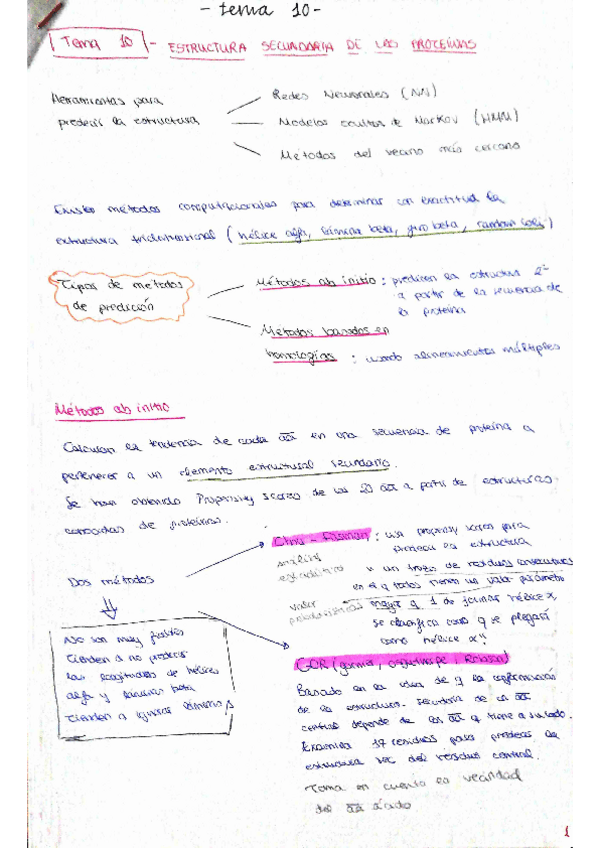 - tema 10 -
Tema 10 - ESTRUCTURA SECUNDARIA DE LAS PROTEÍNAS
Herramientas para
predecir la estructura
Redes Neuronales (NN)
Modelos ocultos de Markov (HMM)
Métodos del vecino más cercano
Existen métodos computacionales para determinar con exactitud la
estructura tridimensional (hélice alfa, lámina beta, giro beta, random coil)
Tipos de métodos
de predicción
Métodos ab initio : predicen la estructura 2ª
a partir de la secuencia de
la proteína
Métodos basados en
homologías : usando alineamientos múltiples
Métodos ab initio
Calculan la tendencia de cada aa en una secuencia de proteína a
pertenecer a un elemento estructural secundario.
Se han obtenido Propensity scores de los 20 aa a partir de estructuras
conocidas de proteínas.
Dos métodos
No son muy fiables
Tienden a no predecir
las longitudes de hélice
alfa y láminas beta
Tienden a ignorar láminas β
Chou - Fasman : usa propensity scores para
predecir la estructura
análisis
estadístico
valor
probabilístico
si un trozo de residuos consecutivos
en el q todos tienen un valor parámetro
mayor q 1 de formar hélice α,
se clasifica como q se plegará
como hélice α"
GOR (garnier, osguthorpe, Robson)
Basado en la idea de q la conformación
de la estructura secundaria de un aa
central depende de los aa q tiene a su lado.
Examina 17 residuos para predecir la
estructura sec del residuo central.
Toma en cuenta la vecindad
del aa aislado
1